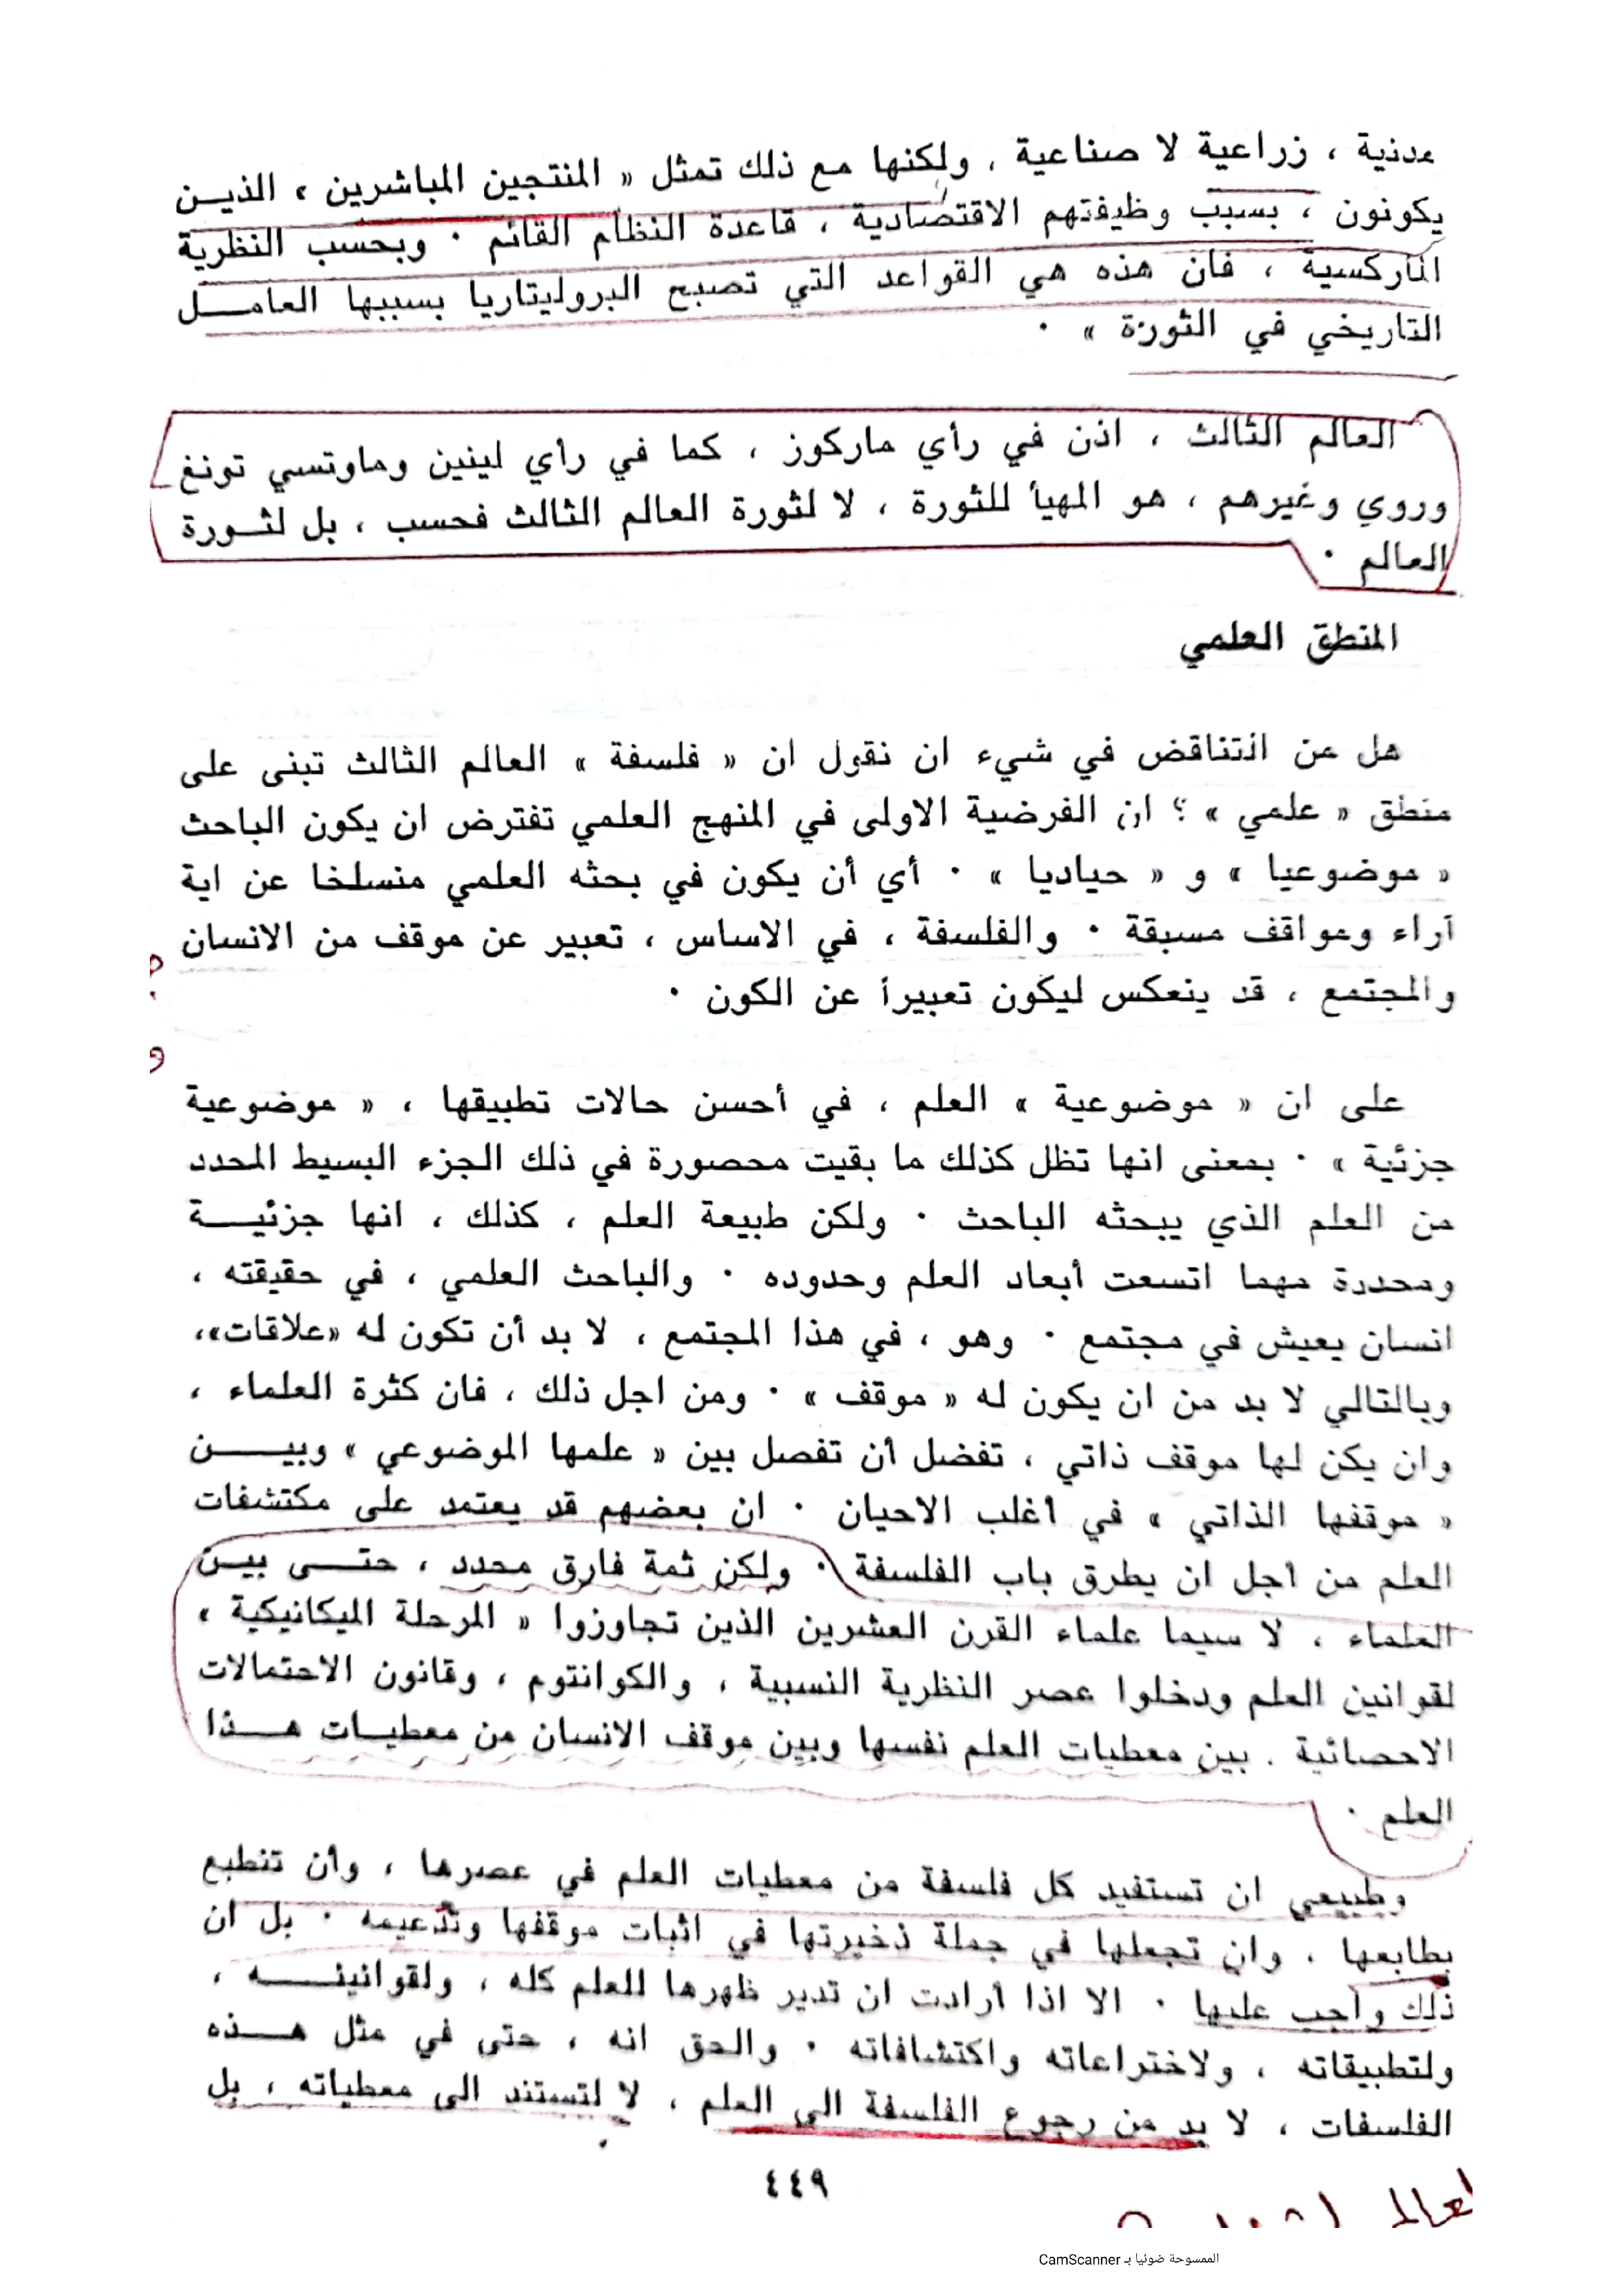 مدنية ، زراعية لا صناعية ، ولكنها مع ذلك تمثل « المنتجين المباشرين » الذيـن
يكونون ، بسبب وظيفتهم الاقتصادية ، قاعدة النظام القائم ٠ وبحسب النظرية
الماركسية ، فان هذه هي القواعد التي تصبح البروليتاريا بسببها العامـــل
التاريخي في الثورة » ٠
العالم الثالث ، اذن في رأي ماركوز ، كما في رأي لينين وماوتسي تونغ
وروي وغيرهم ، هو المهيأ للثورة ، لا لثورة العالم الثالث فحسب ، بل لثـورة
العالم ٠
المنطق العلمي
هل من التناقض في شيء ان نقول ان « فلسفة » العالم الثالث تبنى على
منطق « علمي » ؟ ان الفرضية الاولى في المنهج العلمي تفترض ان يكون الباحث
« موضوعيا » و « حياديا » ٠ أي أن يكون في بحثه العلمي منسلخا عن اية
آراء ومواقف مسبقة ٠ والفلسفة ، في الاساس ، تعبير عن موقف من الانسان
والمجتمع ، قد ينعكس ليكون تعبيراً عن الكون ٠
على ان « موضوعية » العلم ، في أحسن حالات تطبيقها ، « موضوعية
جزئية » ٠ بمعنى انها تظل كذلك ما بقيت محصورة في ذلك الجزء البسيط المحدد
من العلم الذي يبحثه الباحث ٠ ولكن طبيعة العلم ، كذلك ، انها جزئيـــة
ومحددة مهما اتسعت أبعاد العلم وحدوده ٠ والباحث العلمي ، في حقيقته ،
انسان يعيش في مجتمع ٠ وهو ، في هذا المجتمع ، لا بد أن تكون له «علاقات»،
وبالتالي لا بد من ان يكون له « موقف » ٠ ومن اجل ذلك ، فان كثرة العلماء ،
وان يكن لها موقف ذاتي ، تفضل أن تفصل بين « علمها الموضوعي » وبيـــن
« موقفها الذاتي » في أغلب الاحيان ٠ ان بعضهم قد يعتمد على مكتشفات
العلم من اجل ان يطرق باب الفلسفة ٠ ولكن ثمة فارق محدد ، حتـــى بيـن
العلماء ، لا سيما علماء القرن العشرين الذين تجاوزوا « المرحلة الميكانيكية »
لقوانين العلم ودخلوا عصر النظرية النسبية ، والكوانتوم ، وقانون الاحتمالات
الاحصائية ٠ بين معطيات العلم نفسها وبين موقف الانسان من معطيـات هـــذا
العلم ٠
وطبيعي ان تستفيد كل فلسفة من معطيات العلم في عصرها ، وأن تنطبع
بطابعها ، وان تجعلها في جملة ذخيرتها في اثبات موقفها وتدعيمه ٠ بل ان
ذلك واجب عليها ٠ الا اذا أرادت ان تدير ظهرها للعلم كله ، ولقوانينـــه ،
ولتطبيقاته ، ولاختراعاته واكتشافاته ٠ والحق انه ، حتى في مثل هـــذه
الفلسفات ، لا بد من رجوع الفلسفة الى العلم ، لا لتستند الى معطياته ، بل
٤٤٩
الممسوحة ضوئيا بـ CamScanner